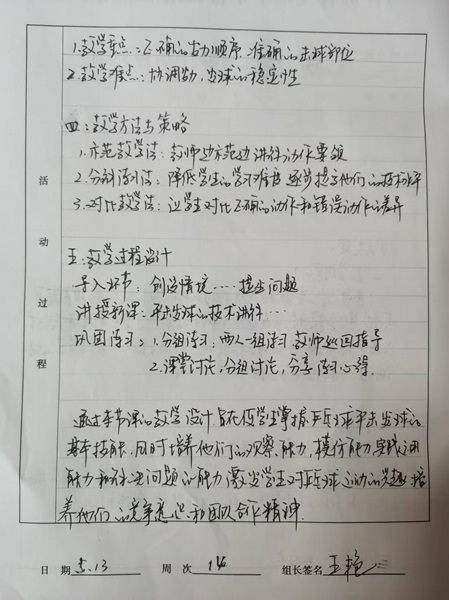 1.教学重点：正确的发力顺序、准确的击球部位
2.教学难点：协调发力，发球的稳定性
四：教学方法与策略
1.示范教学法：教师边示范边讲解动作要领
2.分解练习法：降低学生的学习难度逐步提高他们的技术水平
3.对比教学法：让学生对比正确的动作和错误动作的差异
五：教学过程设计
导入环节：创设情境……提出问题
讲授新课：平击发球的技术讲解…
巩固练习：1.分组练习：两人一组练习，教师巡回指导
2.课堂讨论，分组讨论，分享练习心得.
通过本节课的教学设计旨在使学生掌握乒乓球平击发球的
基本技能.同时培养他们的观察能力，模仿能力，实践运用
能力和解决问题的能力激发学生对乒乓球运动的兴趣培
养他们的竞争意识和团队合作精神.
活动过程
日 期 5.13 周 次 14 组长签名 王艳